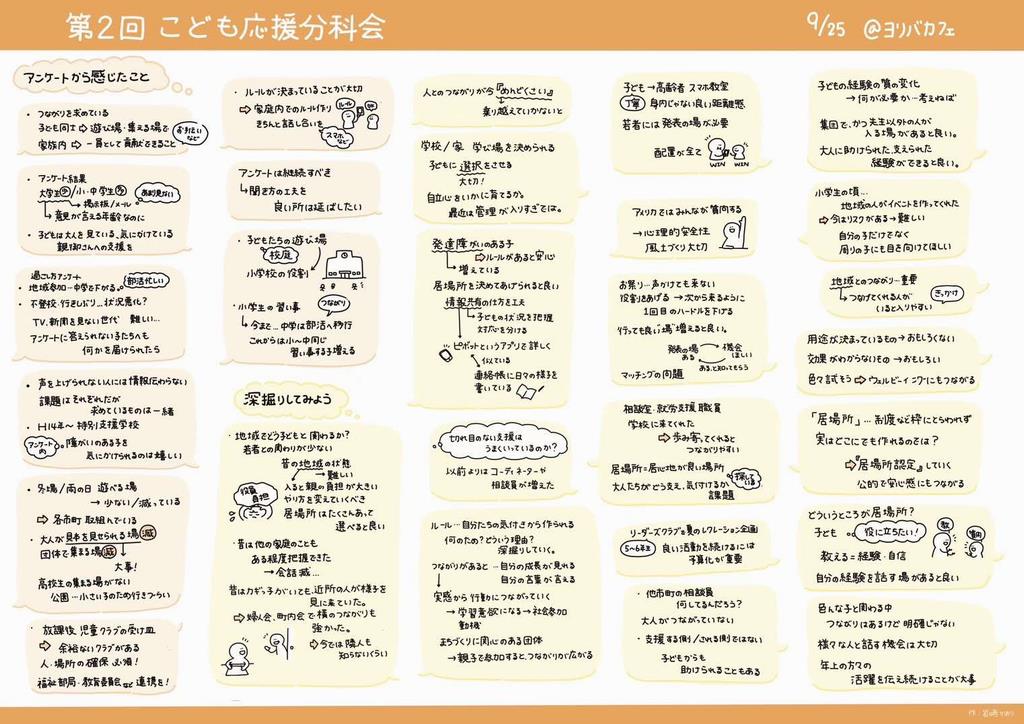 第2回 こども応援分科会
9/25 @ヨリバカフェ
アンケートから感じたこと
・つながりを求めている
子ども同士⇨遊び場・集える場で
家族内⇨一員として貢献できること
お手伝いなど
・アンケート結果
大学生少/小・中学生多
あまり見ない
↳掲示板/メール
↳意見が言える年齢なのに
・子どもは大人を見ている、気にかけている
親御さんへの支援を
過ごし方アンケート
・地域参加…中学で下がる
部活忙しい
・不登校・行きしぶり…状況悪化?
TV、新聞を見ない世代 難しい…
アンケートに答えられない子たちへも
何かを届けられたら
・声を上げられない人には情報伝わらない
課題はそれぞれだが
求めているものは一緒
・H14年〜特別支援学校
アンケート内
障がいのある子を
気にかけられるのは嬉しい
・外場/雨の日 遊べる場
→少ない/減っている
⇨各市町 取組んでいる
・大人が見本を見せられる場減
団体で集まる場減
大事!
高校生の集まる場がない
公園…小さい子のため行きづらい
・放課後、児童クラブの受け皿
⇨余裕ないクラブがある
人・場所の確保 必須!
福祉部局・教育委員会など連携を!
・ルールが決まっていることが大切
⇨家庭内でのルール作り
ルール
きちんと話し合いを
スマホなど
アンケートは継続すべき
↳聞き方の工夫を
良い所は延ばしたい
・子どもたちの遊び場
校庭
小学校の役割
・小学生の習い事
つながり
↳今まで…中学は部活へ移行
これからは小〜中同じ
習い事する子増える
深掘りしてみよう
・地域でどう子どもと関わるか?
若者との関わりが少ない
昔の地域の状態
→難しい
役員負担
入ると親の負担が大きい
やり方を変えていくべき
居場所はたくさんあって
選べると良い
・昔は他の家庭のことも
ある程度把握できた
→会話減…
昔はカギっ子がいても、近所の人が様子を
見に来ていた。
⇨婦人会、町内会で横のつながりも
強かった。
⇨今では隣人も
知らないくらい
人とのつながりが今『めんどくさい』
↳乗り越えていかないと
学校/家 学び場を決められる
子どもに選択をさせる
大切!
自立心をいかに育てるか。
最近は管理が入りすぎでは。
発達障がいのある子
⇨ルールがあると安心
↳増えている
居場所を決めてあげられると良い
情報共有の仕方を工夫
↳子どもの状況を把握
対応を分ける
↳ピボットというアプリで詳しく
似ている
連絡帳に日々の様子を
書いている
切れ目のない支援は
うまくいっているのか?
以前よりはコーディネーターや
相談員が増えた
ルール…自分たちの気付きから作られる
何のため?どういう理由?
深掘りしていく。
つながりがあると…自分の成長が見れる
自分の言葉が言える
実感から行動につながっていく
→学習意欲になる→社会参加
動機
まちづくりに関心のある団体
→親子で参加すると、つながりが広がる
子ども→高齢者 スマホ教室
丁寧
身内じゃない良い距離感
若者には発表の場が必要
配置が全て
WIN WIN
アメリカではみんなが質問する
→心理的安全性
風土づくり大切
お祭り…声かけても来ない
役割をあげる→次から来るように
1回目のハードルを下げる
行っても良い場増えると良い。
発表の場ある
機会ほしい
あると知ってもらう
マッチングの問題
相談室・就労支援職員
学校に来てくれた
→歩み寄ってくれると
つながりやすい
居場所=居心地が良い場所
探している
大人たちがどう支え、気付けるか
課題
リーダーズクラブが夏のレクレーション企画
5〜6年生
良い活動を続けるには
予算化が重要
・他市町の相談員
何してるんだろう?
大人がつながっていない
・支援する側/される側ではない
子どもからも
助けられることもある
子どもの経験の質の変化
→何が必要か…考えねば
集団で、かつ先生以外の人が
入る場があると良い。
大人に助けられた、支えられた
経験ができると良い。
小学生の頃…
地域の人がイベントを作ってくれた
⇨今はリスクがある→難しい
自分の子だけでなく
周りの子にも目を向けてほしい
地域とのつながり…重要
↳つなげてくれる人が
いると入りやすい
きっかけ
用途が決まっているもの→おもしろくない
効果がわからないもの→おもしろい
色々試そう⇨ウェルビーイングにもつながる
「居場所」…制度など枠にとらわれず
実はどこにでも作れるのでは?
⇨『居場所認定』していく
公的で安心感にもつながる
どういうところが居場所?
子ども
役に立ちたい!
教える=経験・自信
自分の経験を話す場があると良い
色んな子と関わる中
つながりはあるけど明確じゃない
様々な人と話す機会は大切
年上の方々の
活躍を伝え続けることが大事